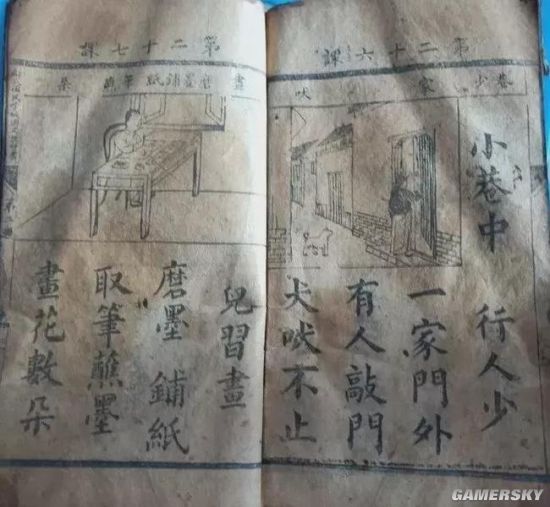 第二十六課
巷少 家 吠
小巷中 行人少
一家門外
有人敲門
犬吠不止
第二十七課
畫磨墨鋪紙筆蘸 朵
兒習畫
磨墨 鋪紙
取筆蘸墨
畫花數朵
GAMERSKY